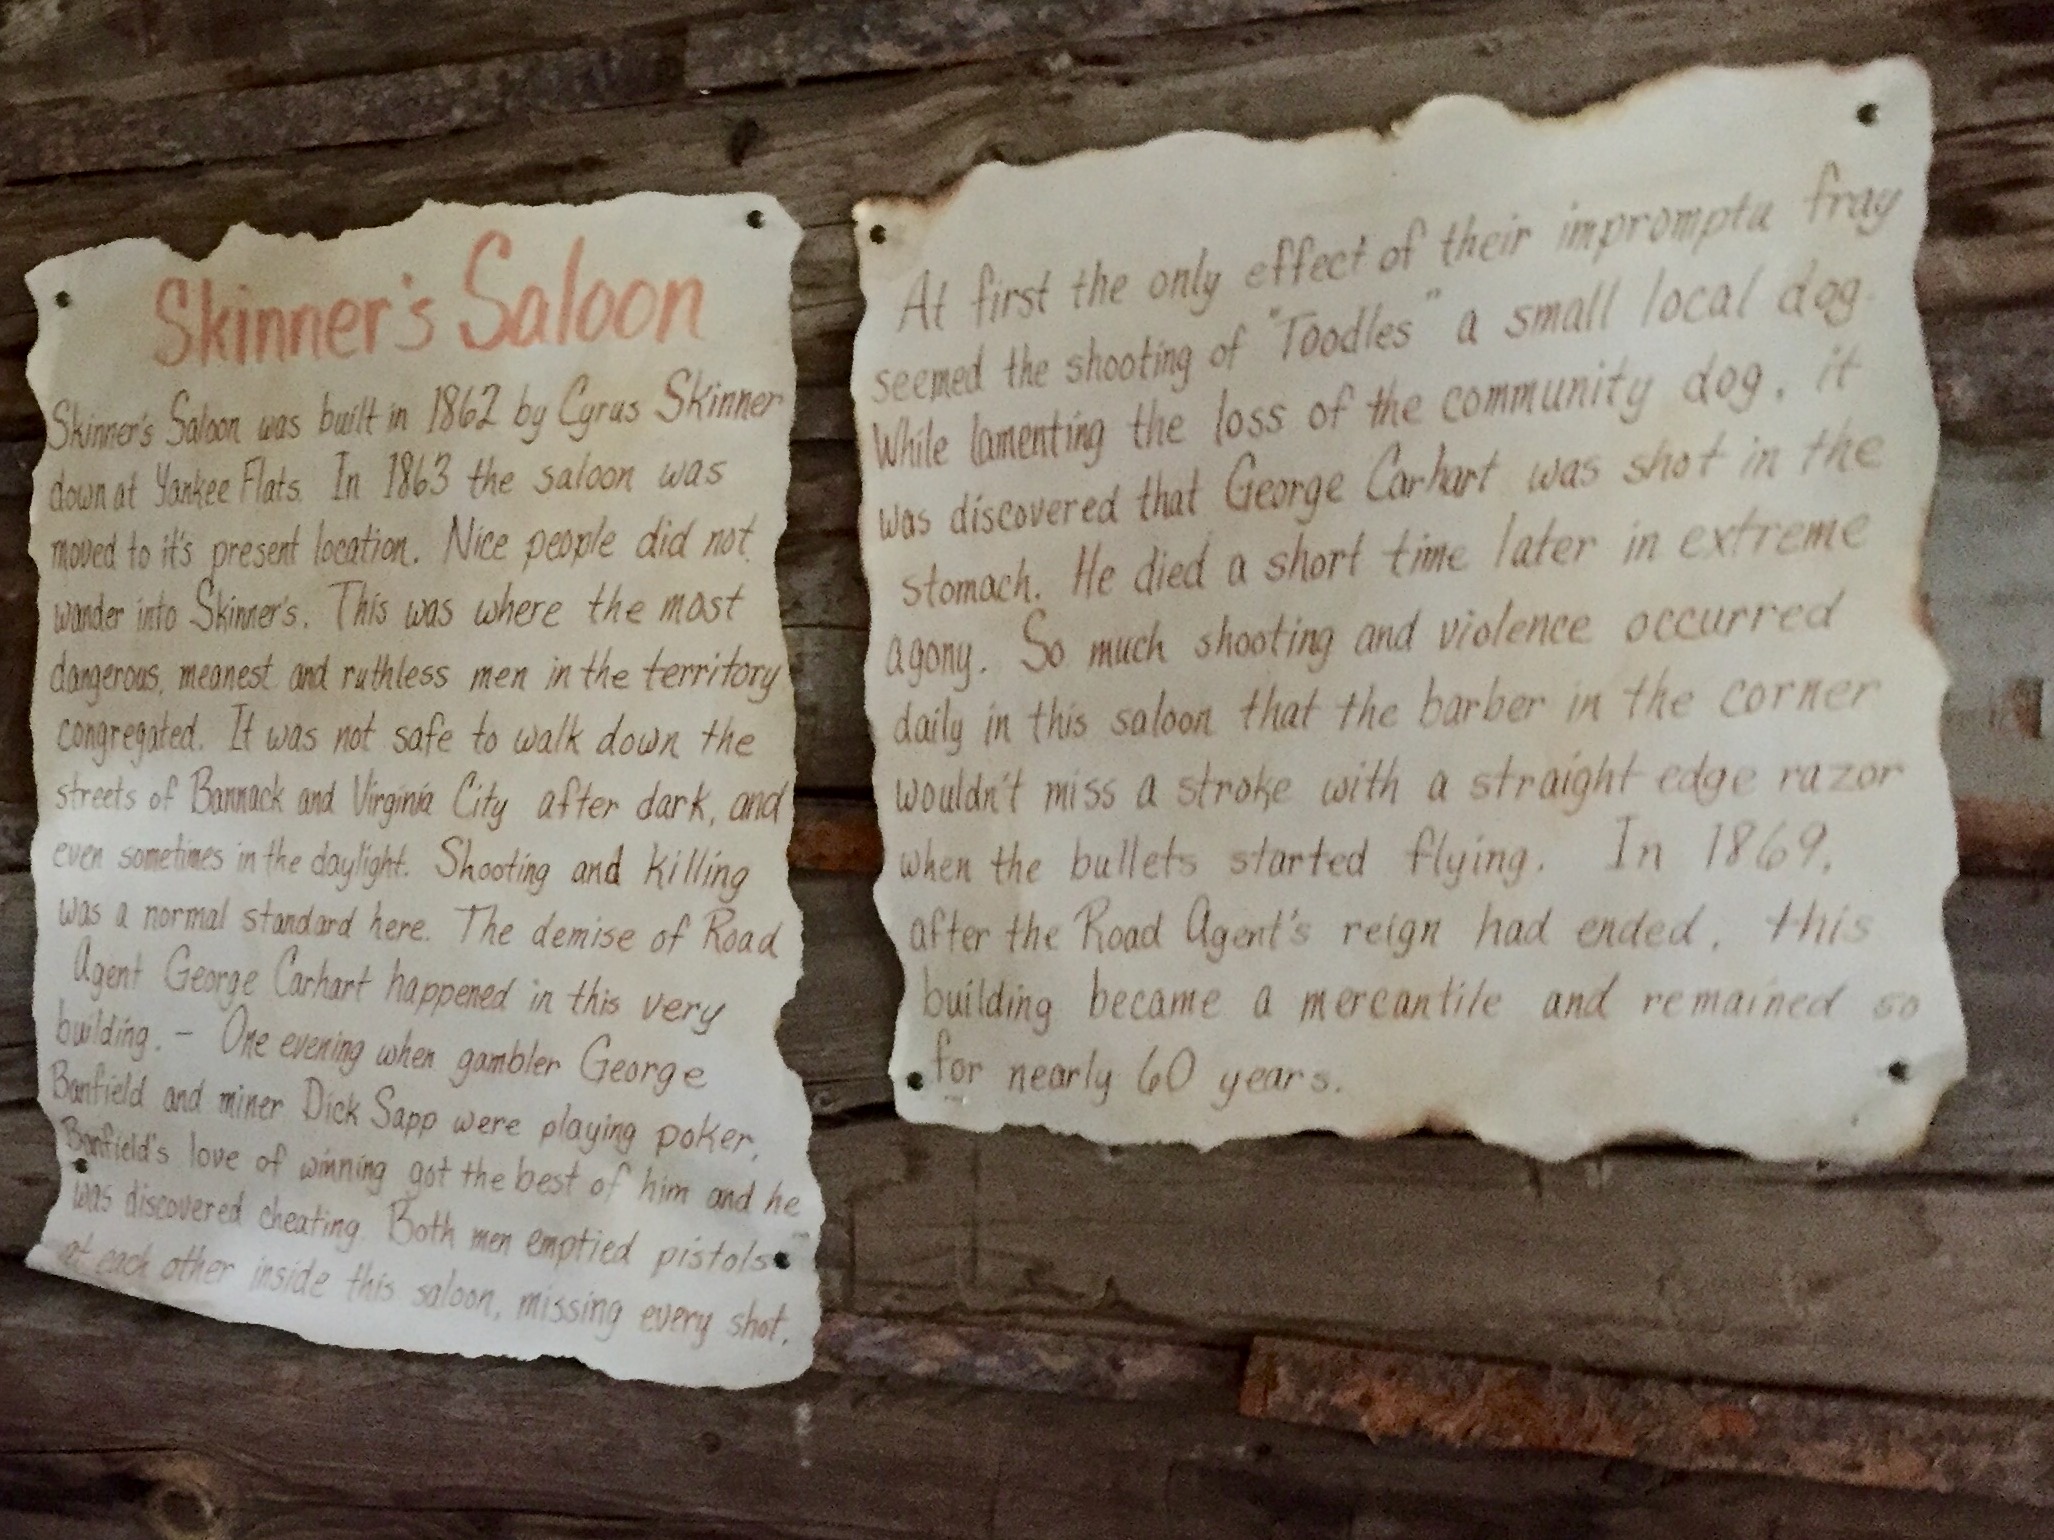 Skinner's Saloon
Skinner's Saloon was built in 1862 by Cyrus Skinner
down at Yankee Flats. In 1863 the saloon was
moved to it's present location. Nice people did not
wander into Skinner's. This was where the most
dangerous, meanest and ruthless men in the territory
congregated. It was not safe to walk down the
streets of Bannack and Virginia City after dark, and
even sometimes in the daylight. Shooting and killing
was a normal standard here. The demise of Road
Agent George Carhart happened in this very
building. - One evening when gambler George
Banfield and miner Dick Sapp were playing poker,
Banfield's love of winning got the best of him and he
was discovered cheating. Both men emptied pistols
at each other inside this saloon, missing every shot.
At first the only effect of their impromptu fray
seemed the shooting of "Toodles" a small local dog.
While lamenting the loss of the community dog, it
was discovered that George Carhart was shot in the
stomach. He died a short time later in extreme
agony. So much shooting and violence occurred
daily in this saloon that the barber in the corner
wouldn't miss a stroke with a straight edge razor
when the bullets started flying. In 1869,
after the Road Agent's reign had ended, this
building became a mercantile and remained so
for nearly 60 years.